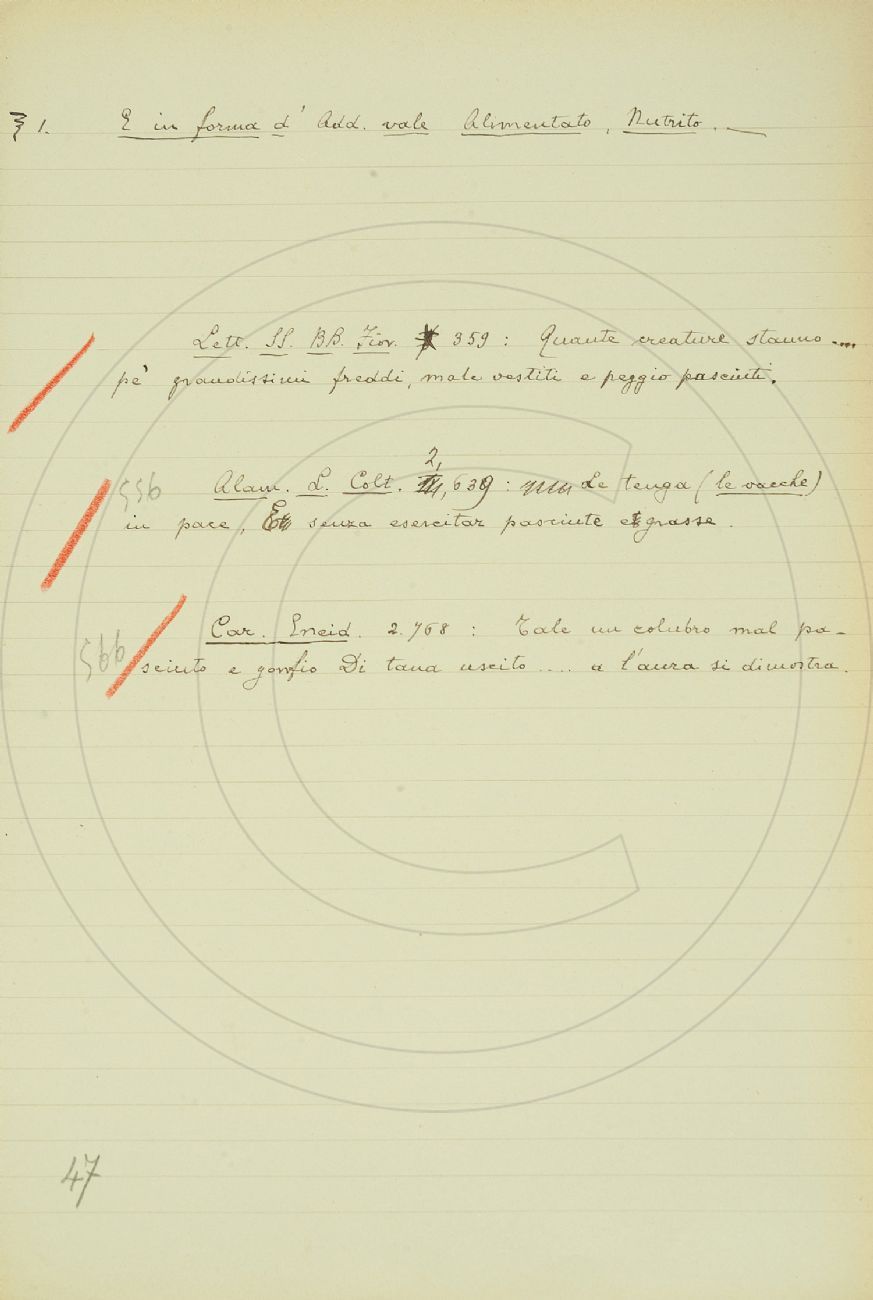 § 1. E in forma d' Add. vale Alimentato, Nutrito. —
Lett. SS. BB. Fior. 359 : Quante creature stanno ....
pe' grandissimi freddi, male vestiti e peggio pasciuti.
2,
556 Alam. L. Colt. , 639 : Le tenga (le vacche)
in pace, E senza esercitar pasciute e grasse .
Car. Eneid. 2. 768 : Tale un colubro mal pa-
566 sciuto e gonfio Di tana uscito .... a l'aura si dimostra .
47